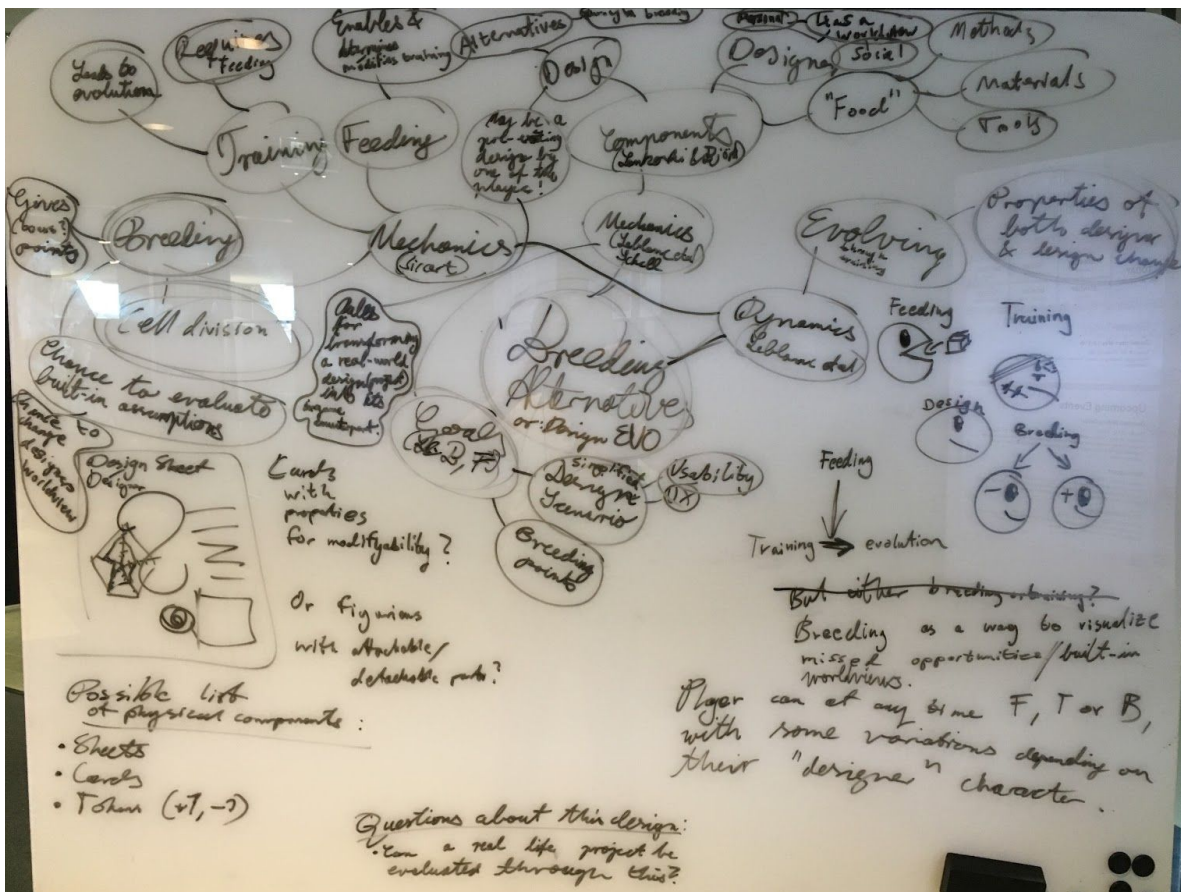 Leads to
evolution
Requires
feeding
Enables &
determines
modifies training
Alternatives
Design
Designer
Personal
Has a
worldview
Social
Methods
"Food"
Materials
Tools
Training
Feeding
May be a
pre-existing
design by
one of the
players!
Components
Gives
(bonus?)
points
Breeding
Mechanics
(Sicart)
Mechanics
(Leblanc et al
Schell
Evolving
through
training
Properties of
both designer
& design change
Cell division
Rules
for
transforming
a real-world
design project
into its
in-game
counterpart.
Breeding
Alternatives
or: Design EVO
Dynamics
Leblanc et al
Feeding
Training
Design
Breeding
- +
Chance to evaluate
built-in assumptions
Chance to
change
designer's
worldview
Goals
Simplified
Design
Scenario
Usability
UX
Breeding
points
Design Sheet
Designer
Cards
with
properties
for modifyability?
Or figurines
with attachable/
detachable parts?
Feeding
Training ⇒ evolution
But either breeding or training?
Breeding as a way to visualize
missed opportunities/built-in
worldviews.
Player can at any time F, T or B,
with some variations depending on
their "designer" character.
Possible list
of physical components:
• Sheets
• Cards
• Token (+1, -1)
Questions about this design:
• Can a real life project be
evaluated through this?
Upcoming Events